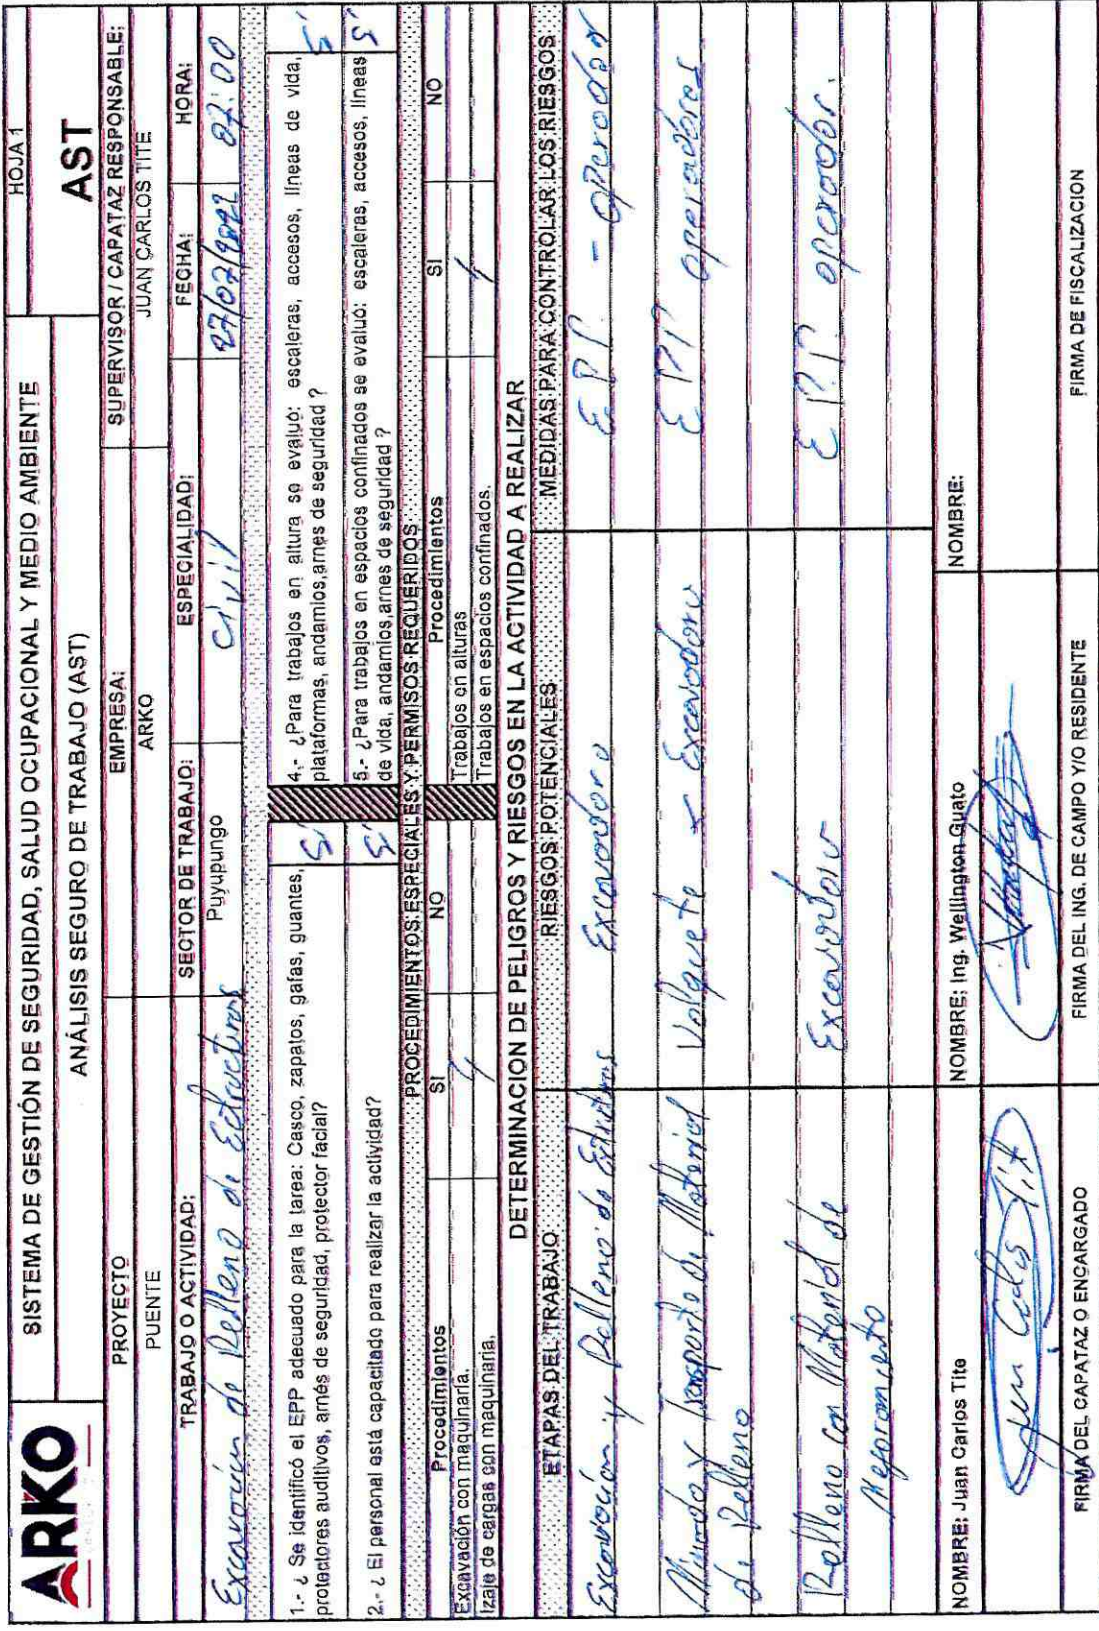 ARKO
SISTEMA DE GESTIÓN DE SEGURIDAD, SALUD OCUPACIONAL Y MEDIO AMBIENTE
HOJA 1
ANÁLISIS SEGURO DE TRABAJO (AST)
AST
PROYECTO
EMPRESA:
SUPERVISOR / CAPATAZ RESPONSABLE:
PUENTE
ARKO
JUAN CARLOS TITE
TRABAJO O ACTIVIDAD:
SECTOR DE TRABAJO:
ESPECIALIDAD:
FECHA:
HORA:
Excavación de Relleno de Estructuras
Puyupungo
Civil
27/07/2022
07:00
1.- ¿ Se identificó el EPP adecuado para la tarea: Casco, zapatos, gafas, guantes,
protectores auditivos, arnés de seguridad, protector facial?
Sí
4.- ¿Para trabajos en altura se evaluó: escaleras, accesos, líneas de vida,
plataformas, andamios,arnes de seguridad ?
Sí
2.- ¿ El personal está capacitado para realizar la actividad?
Sí
5.- ¿Para trabajos en espacios confinados se evaluó: escaleras, accesos, líneas
de vida, andamios,arnes de seguridad ?
Sí
PROCEDIMIENTOS ESPECIALES Y PERMISOS REQUERIDOS
Procedimientos
SI
NO
Procedimientos
SI
NO
Excavación con maquinaria.
Trabajos en alturas
Izaje de cargas con maquinaria.
Trabajos en espacios confinados.
DETERMINACION DE PELIGROS Y RIESGOS EN LA ACTIVIDAD A REALIZAR
ETAPAS DEL TRABAJO
RIESGOS POTENCIALES
MEDIDAS PARA CONTROLAR LOS RIESGOS
Excavación y Relleno de Estructuras
Excavadora
EPP - operador
y Transporte de Material
de Relleno
Volquete Excavadora
EPP operadores
Relleno con Material de
Mejoramiento
Excavadora
EPP. operador.
NOMBRE: Juan Carlos Tite
NOMBRE: Ing. Wellington Guato
NOMBRE:
Juan Carlos Tite
FIRMA DEL CAPATAZ O ENCARGADO
FIRMA DEL ING. DE CAMPO Y/O RESIDENTE
FIRMA DE FISCALIZACION